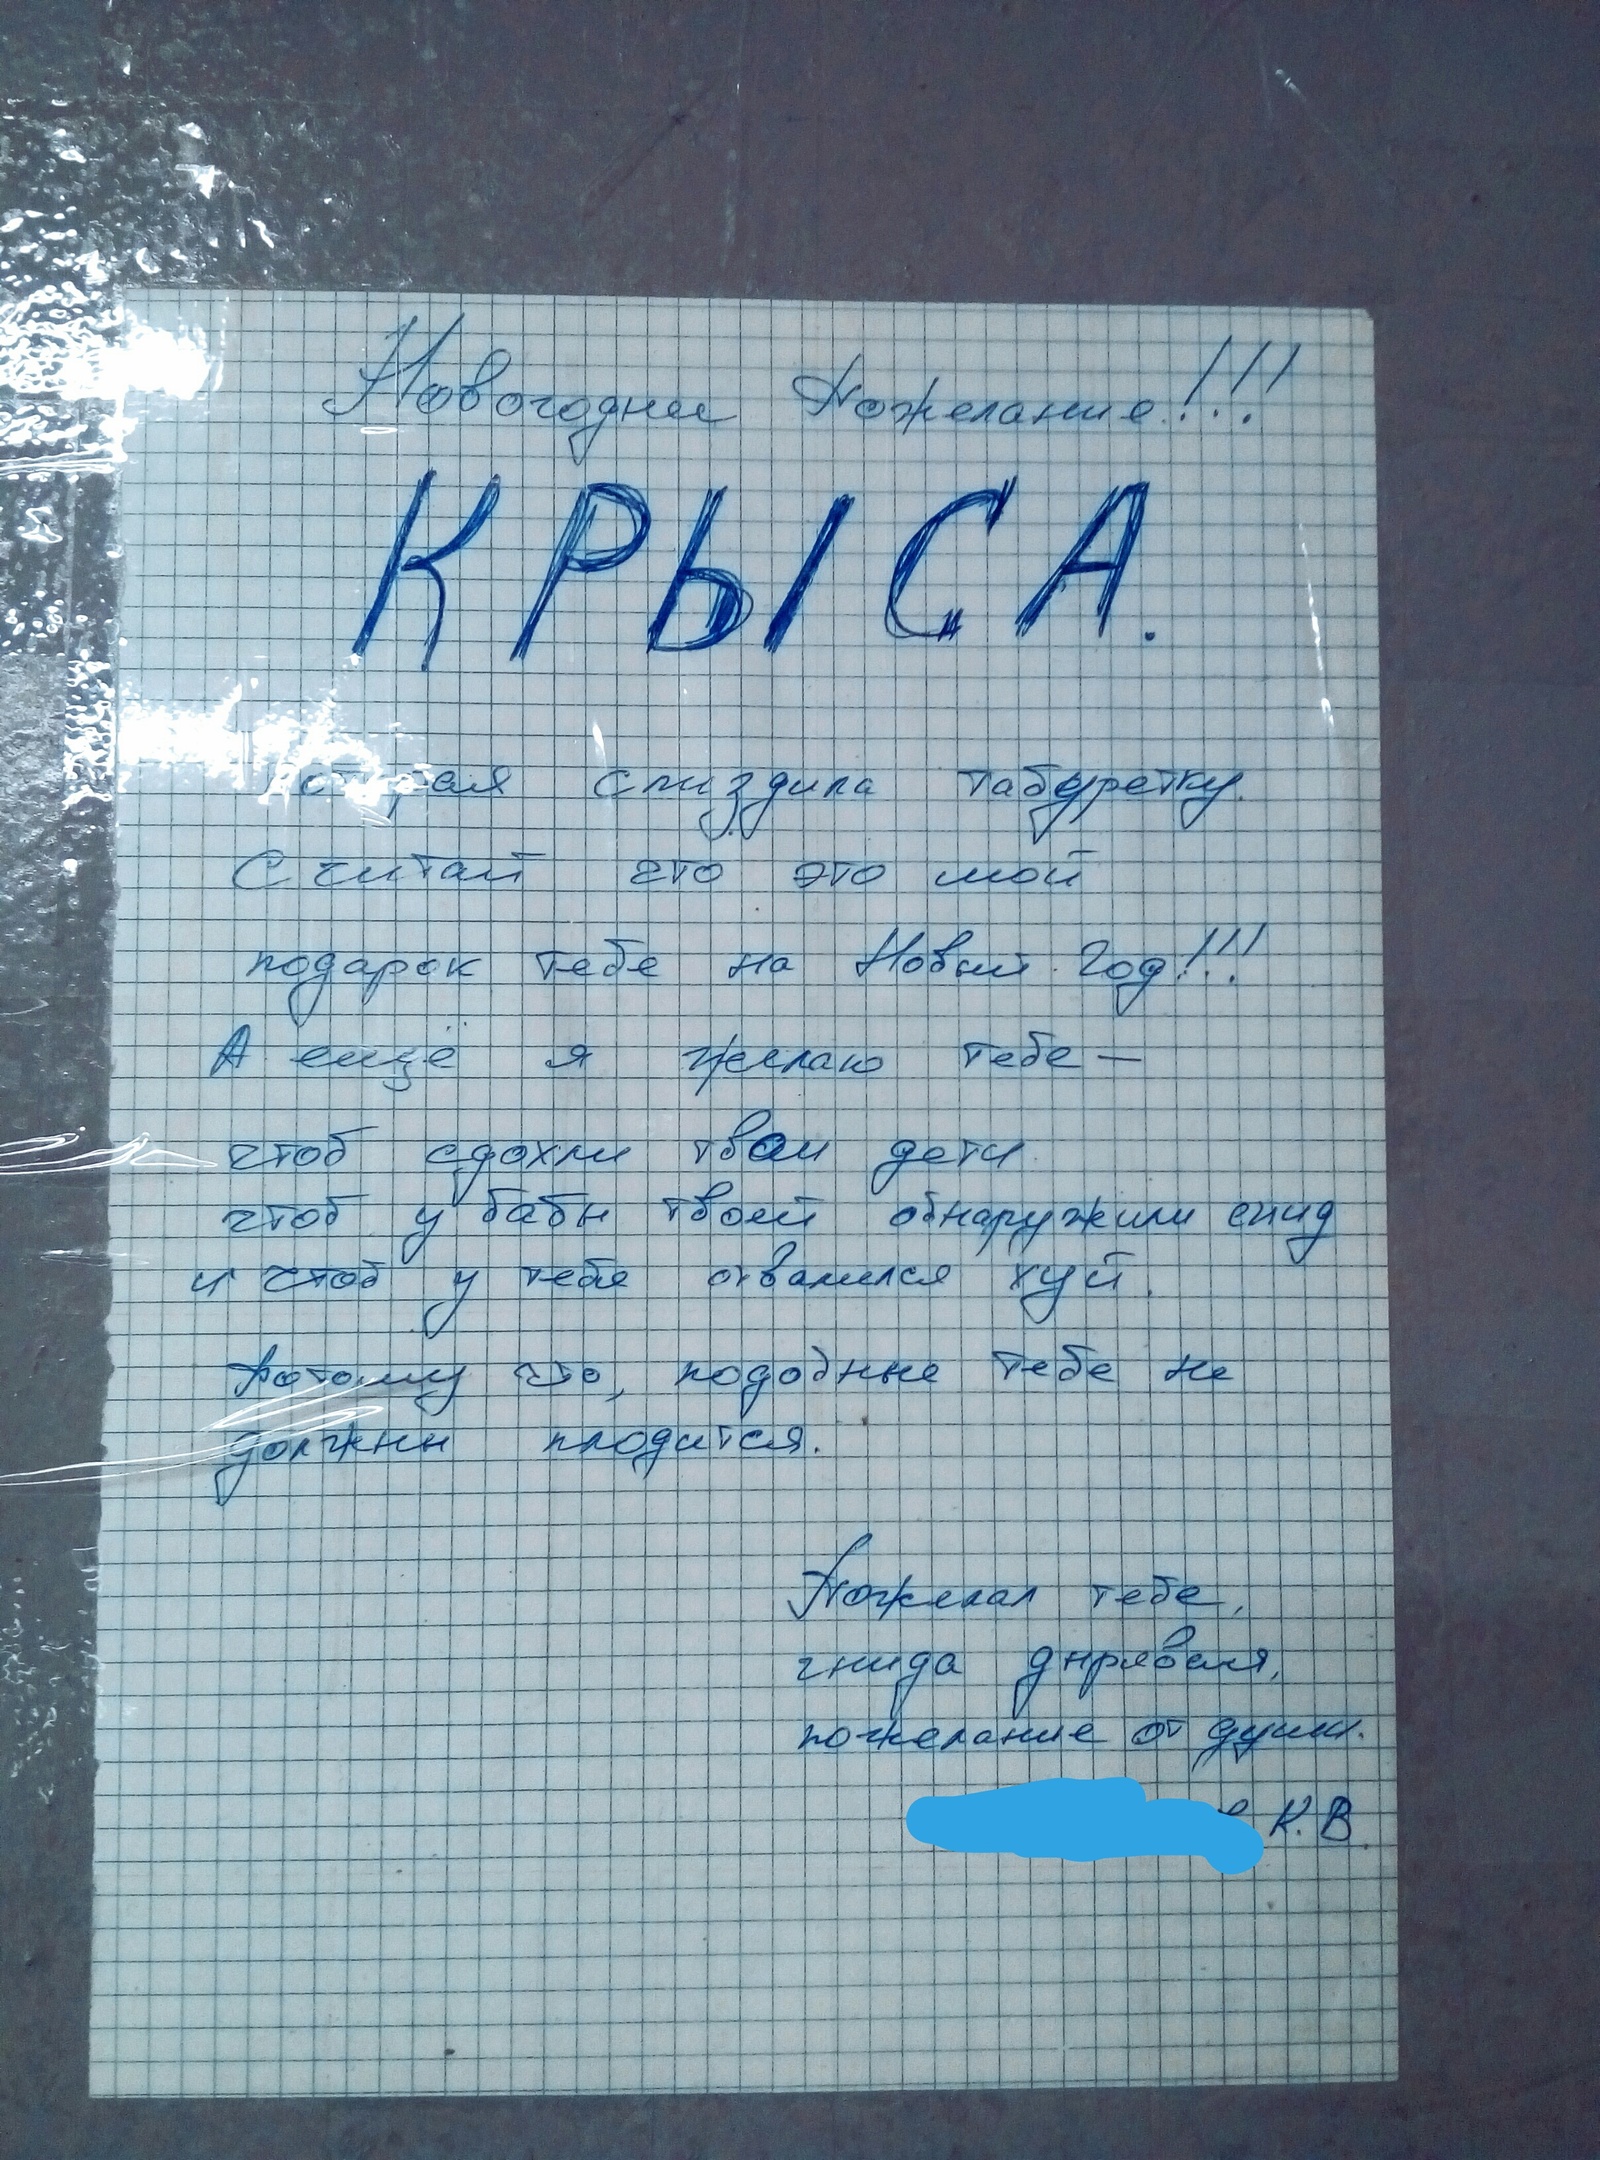 Новогоднее Пожелание!!!
КРЫСА.
которая спиздила табуретку.
Считай что это мой
подарок тебе на Новый Год!!!
А ещё я желаю тебе —
чтоб сдохли твои дети
чтоб у бабы твоей обнаружили спид
и чтоб у тебя отвалился хуй.
Потому что, подобные тебе не
должны плодится.
Пожелал тебе,
гнида дырявая,
пожелание от души.
К.В.